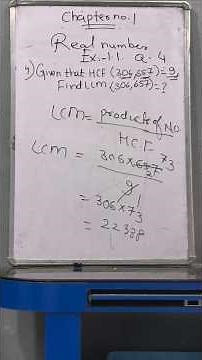 Chapter no. 1
Real number
Ex. 1.1 Q. 4
Given that HCF (306,657)=9,
Find LCM (306,657)=?
LCM = product of No
HCF
LCM = 306×657 73
9
= 306×73
= 22338